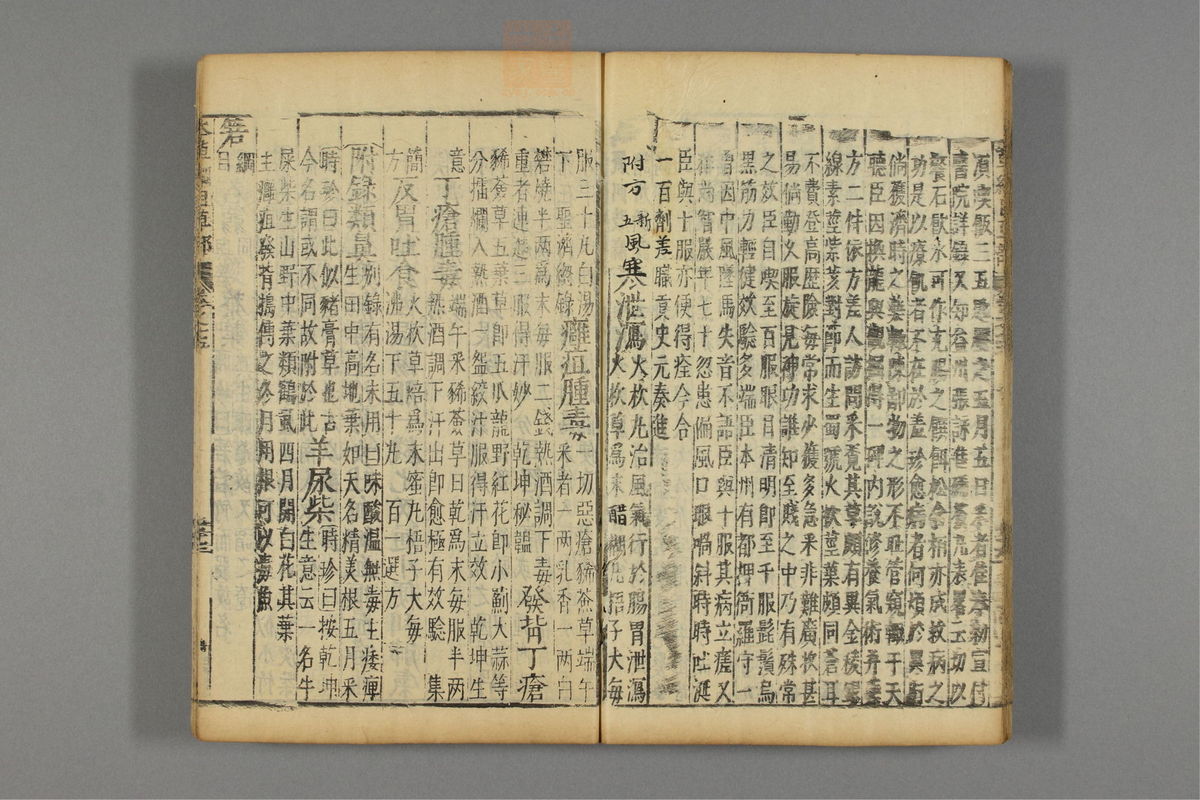 煩渴飯三五
醫院詳錄又知益州張詠進豨薟丸表畧云切以
餐石飲水可作充腸之饌餌松含栢亦成救病之
功是以療飢者不在於羞珍愈病者何煩於異術
倘獲濟時之藥輒陳鄙物之形不耻管窺輒干天
聽臣因換龍興觀掘得一碑內說修養氣術并藥
方二件依方差人訪問采覓其草頗有異金稜銀
線素莖紫荄對節而生蜀號火枚莖葉頗同蒼耳
不費登高歷險每常求少獲多急采非難廣收甚
易倘勤久服旋見神功誰知至賤之中乃有殊常
之效臣自喫至百服眼目清明即至千服髭鬢烏
黑筋力輕健效驗多端臣本州有都押衙羅守一
曾因中風墜馬失音不語臣與十服其病立瘥又
和尚智嚴年七十忽患偏風口眼喎斜時時吐涎
臣與十服亦便得痊今合
一百劑差職貢史元奏進
附方新五風寒泄瀉火枚丸治風氣行於腸胃泄瀉
火枚草爲末醋糊丸梧子大每
服三十丸白湯
下聖濟總錄癰疽腫毒一切惡瘡豨薟草端午
采者一兩乳香一兩白
礬燒半兩爲末每服二錢熱酒調下毒
重者連進三服得汗妙乾坤秘韞發背丁瘡
豨薟草五葉草即五爪龍野紅花即小薊大蒜等
分擂爛入熱酒一盌絞汁服得汗立效乾坤生
意丁瘡腫毒端午采豨薟草日乾爲末每服半兩
熱酒調下汗出即愈極有效驗集
簡方反胃吐食火枚草焙爲末蜜丸梧子大每
沸湯下五十丸百一選方
附錄類鼻別錄有名未用曰味酸溫無毒主痿痺
生田中高地葉如天名精美根五月采
時珍曰此似豬膏草也古
今名謂或不同故附於此羊尿柴時珍曰按乾坤
生意云一名牛
尿柴生山野中葉類鶴虱四月開白花其葉
主癰疽發背搗傅之冬月用根可以毒魚
箬綱目